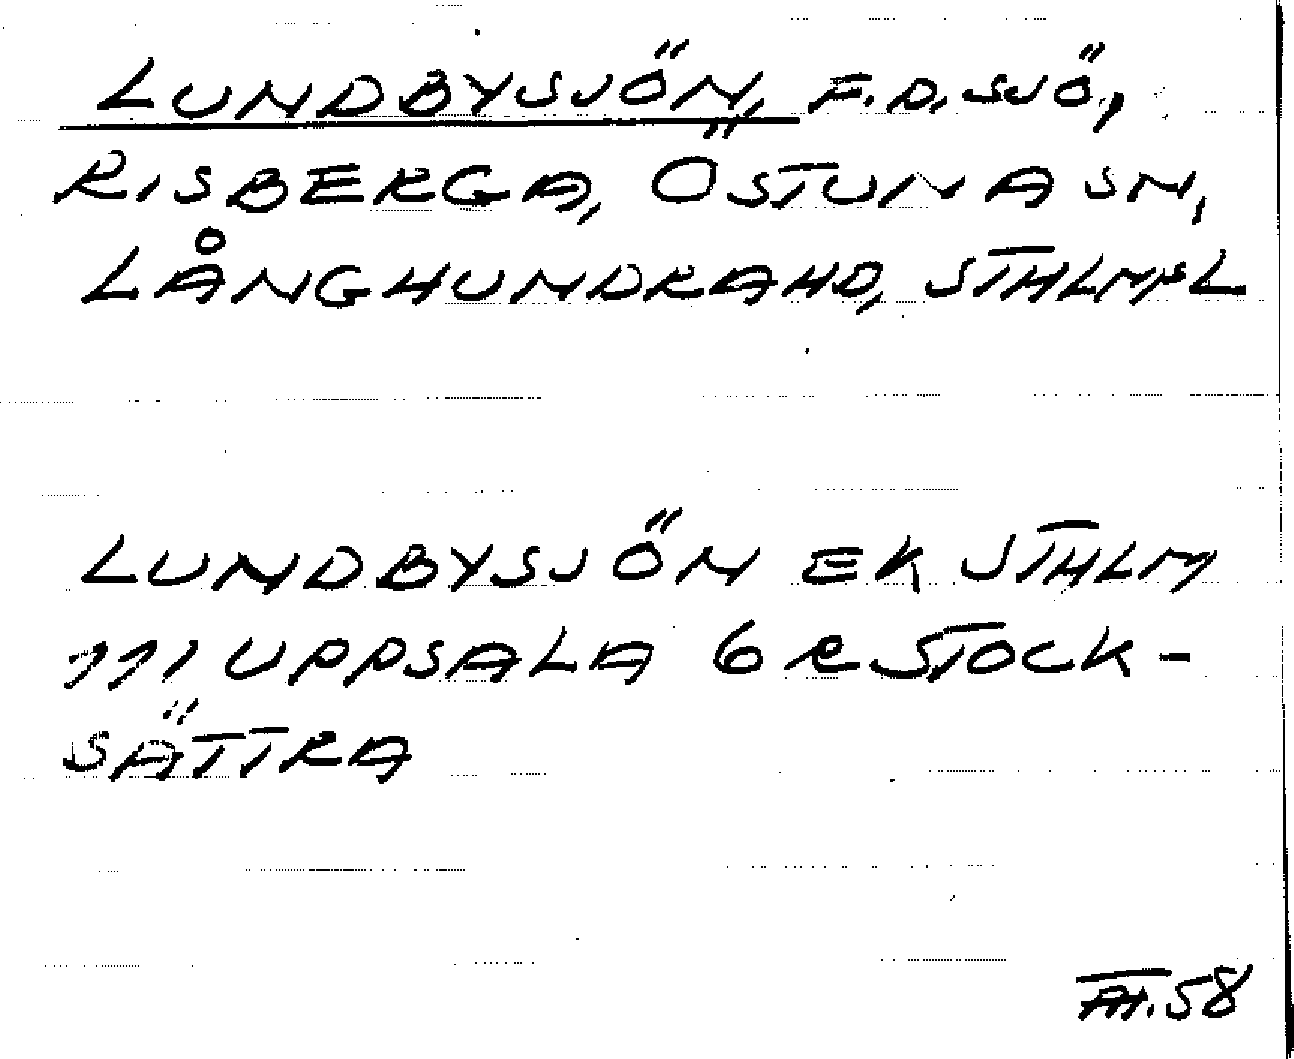 LUNDBYSJÖN, F.D. SJÖ,
RISBERGA, ÖSTUNA SN,
LÅNGHUNDRA HD, STHLMS L
LUNDBYSJÖN EK STHLM
111 UPPSALA 6 e STOCK-
SÄTTRA
58